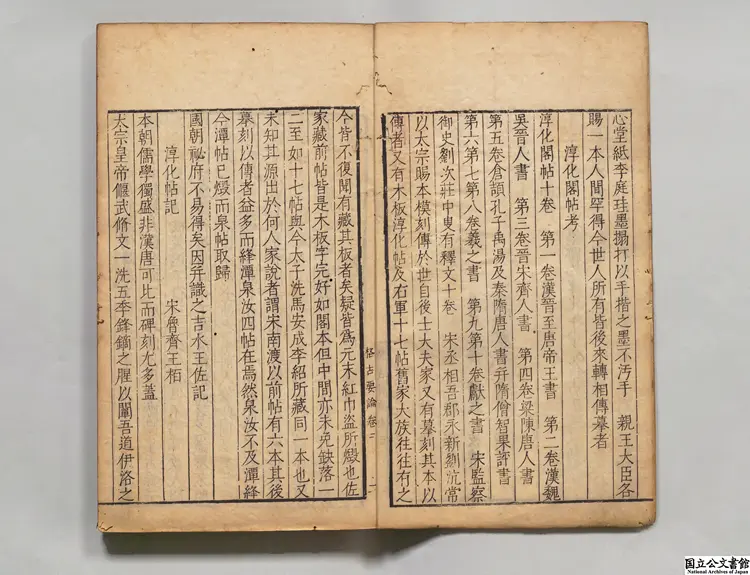 心堂紙李庭珪墨搨打以手揩之墨不汚手　親王大臣各
賜一本人間罕得今世人所有皆後來轉相傳摹者
淳化閣帖考
淳化閣帖十卷　第一卷漢晉至唐帝王書　第二卷漢魏
吳晉人書　第三卷晉宋齊人書　第四卷梁陳唐人書
第五卷倉頡孔子禹湯及秦隋唐人書幷隋僧智果評書
第六第七第八卷羲之書　第九第十卷獻之書　宋監察
御史劉次莊中叟有釋文十卷　宋丞相吾郡永新劉沆常
以太宗賜本模刻傳於世自後士大夫家又有摹刻其本以
傳者又有木板淳化帖及右軍十七帖舊家大族往往有之
格古要論卷三
今皆不復聞有藏其板者矣疑皆爲元末紅巾盜所燬也佐
家藏前帖皆是木板字完好如閣本但中間亦未免缺落一
二至如十七帖與今太子洗馬安成李紹所藏同一本也又
未知其源出於何人家說者謂宋南渡以前帖有六本其後
摹刻以傳者益多而絳潭泉汝四帖在焉然泉汝不及潭絳
今潭帖已燬而泉帖取歸
國朝祕府不易得矣因幷識之吉水王佐記
淳化帖記　宋魯齊王柏
本朝儒學獨盛非漢唐可比而碑刻尤多蓋
太宗皇帝偃武脩文一洗五季鋒鏑之腥以闢吾道伊洛之
国立公文書館
National Archives of Japan